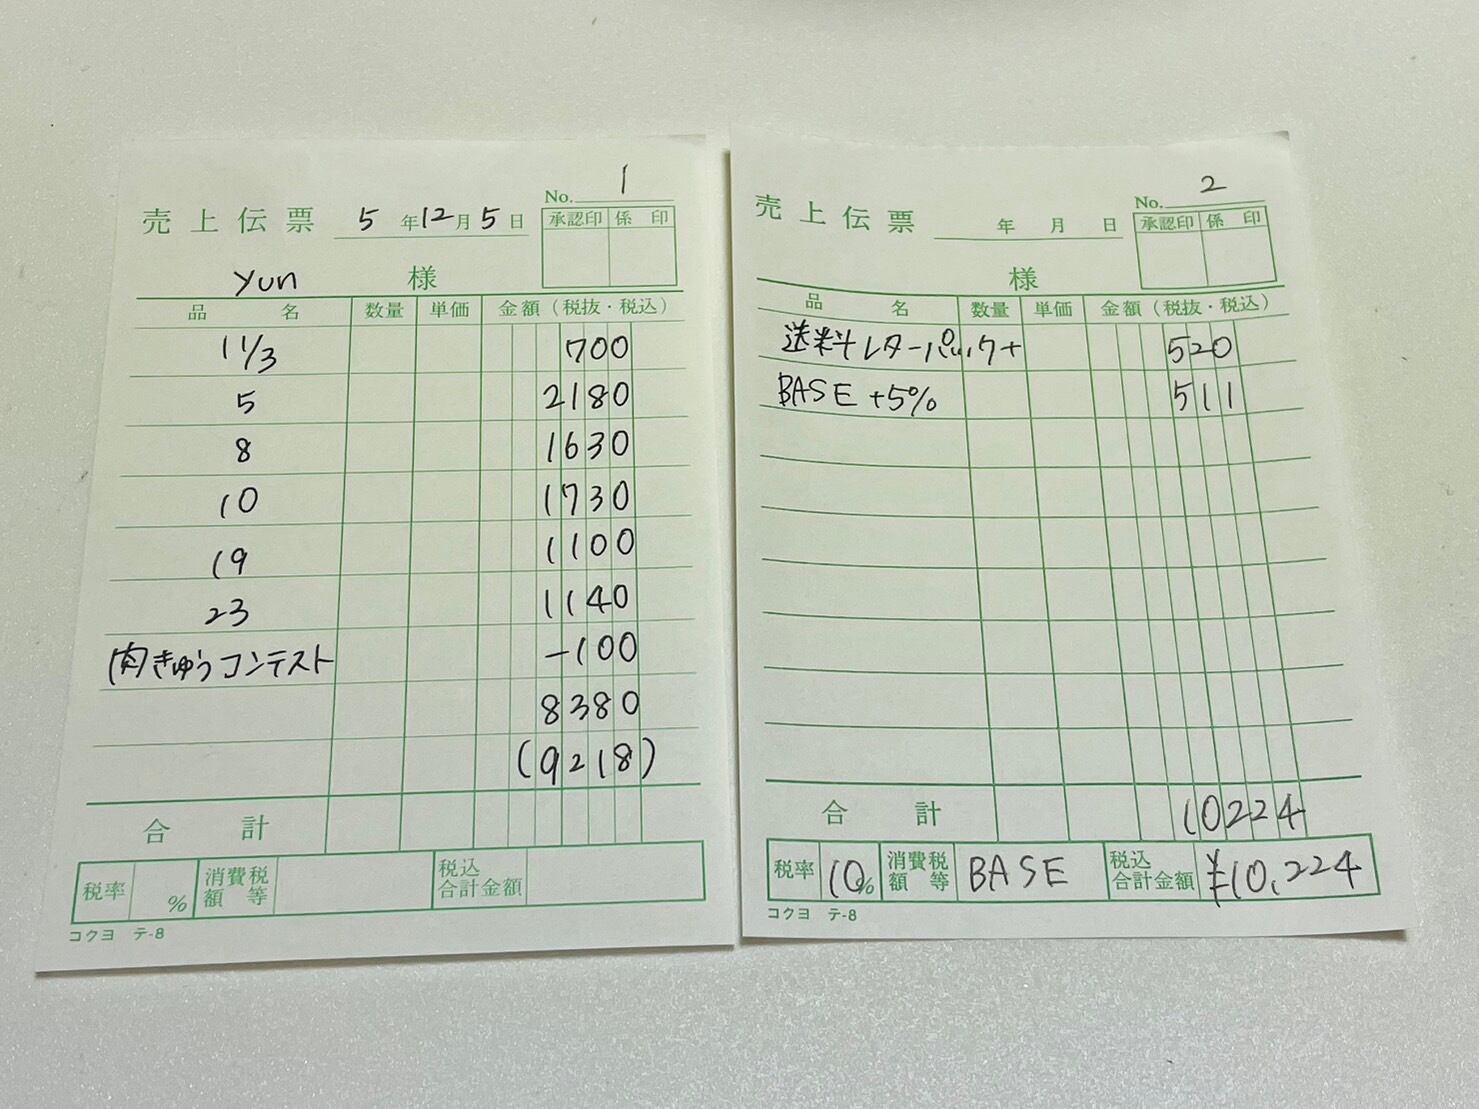 No. 1
売上伝票 5年12月5日
承認印 係印
yun 様
品名 数量 単価 金額（税抜・税込）
11/3 700
5 2180
8 1630
10 1730
19 1100
23 1140
肉きゅうコンテスト -100
8380
(9218)
合計
税率 % 消費税額等 税込合計金額
コクヨ テ-8
No. 2
売上伝票 年 月 日
承認印 係印
様
品名 数量 単価 金額（税抜・税込）
送料レターパック+ 520
BASE +5% 511
合計 10224
税率 10% 消費税額等 BASE 税込合計金額 ¥10,224
コクヨ テ-8